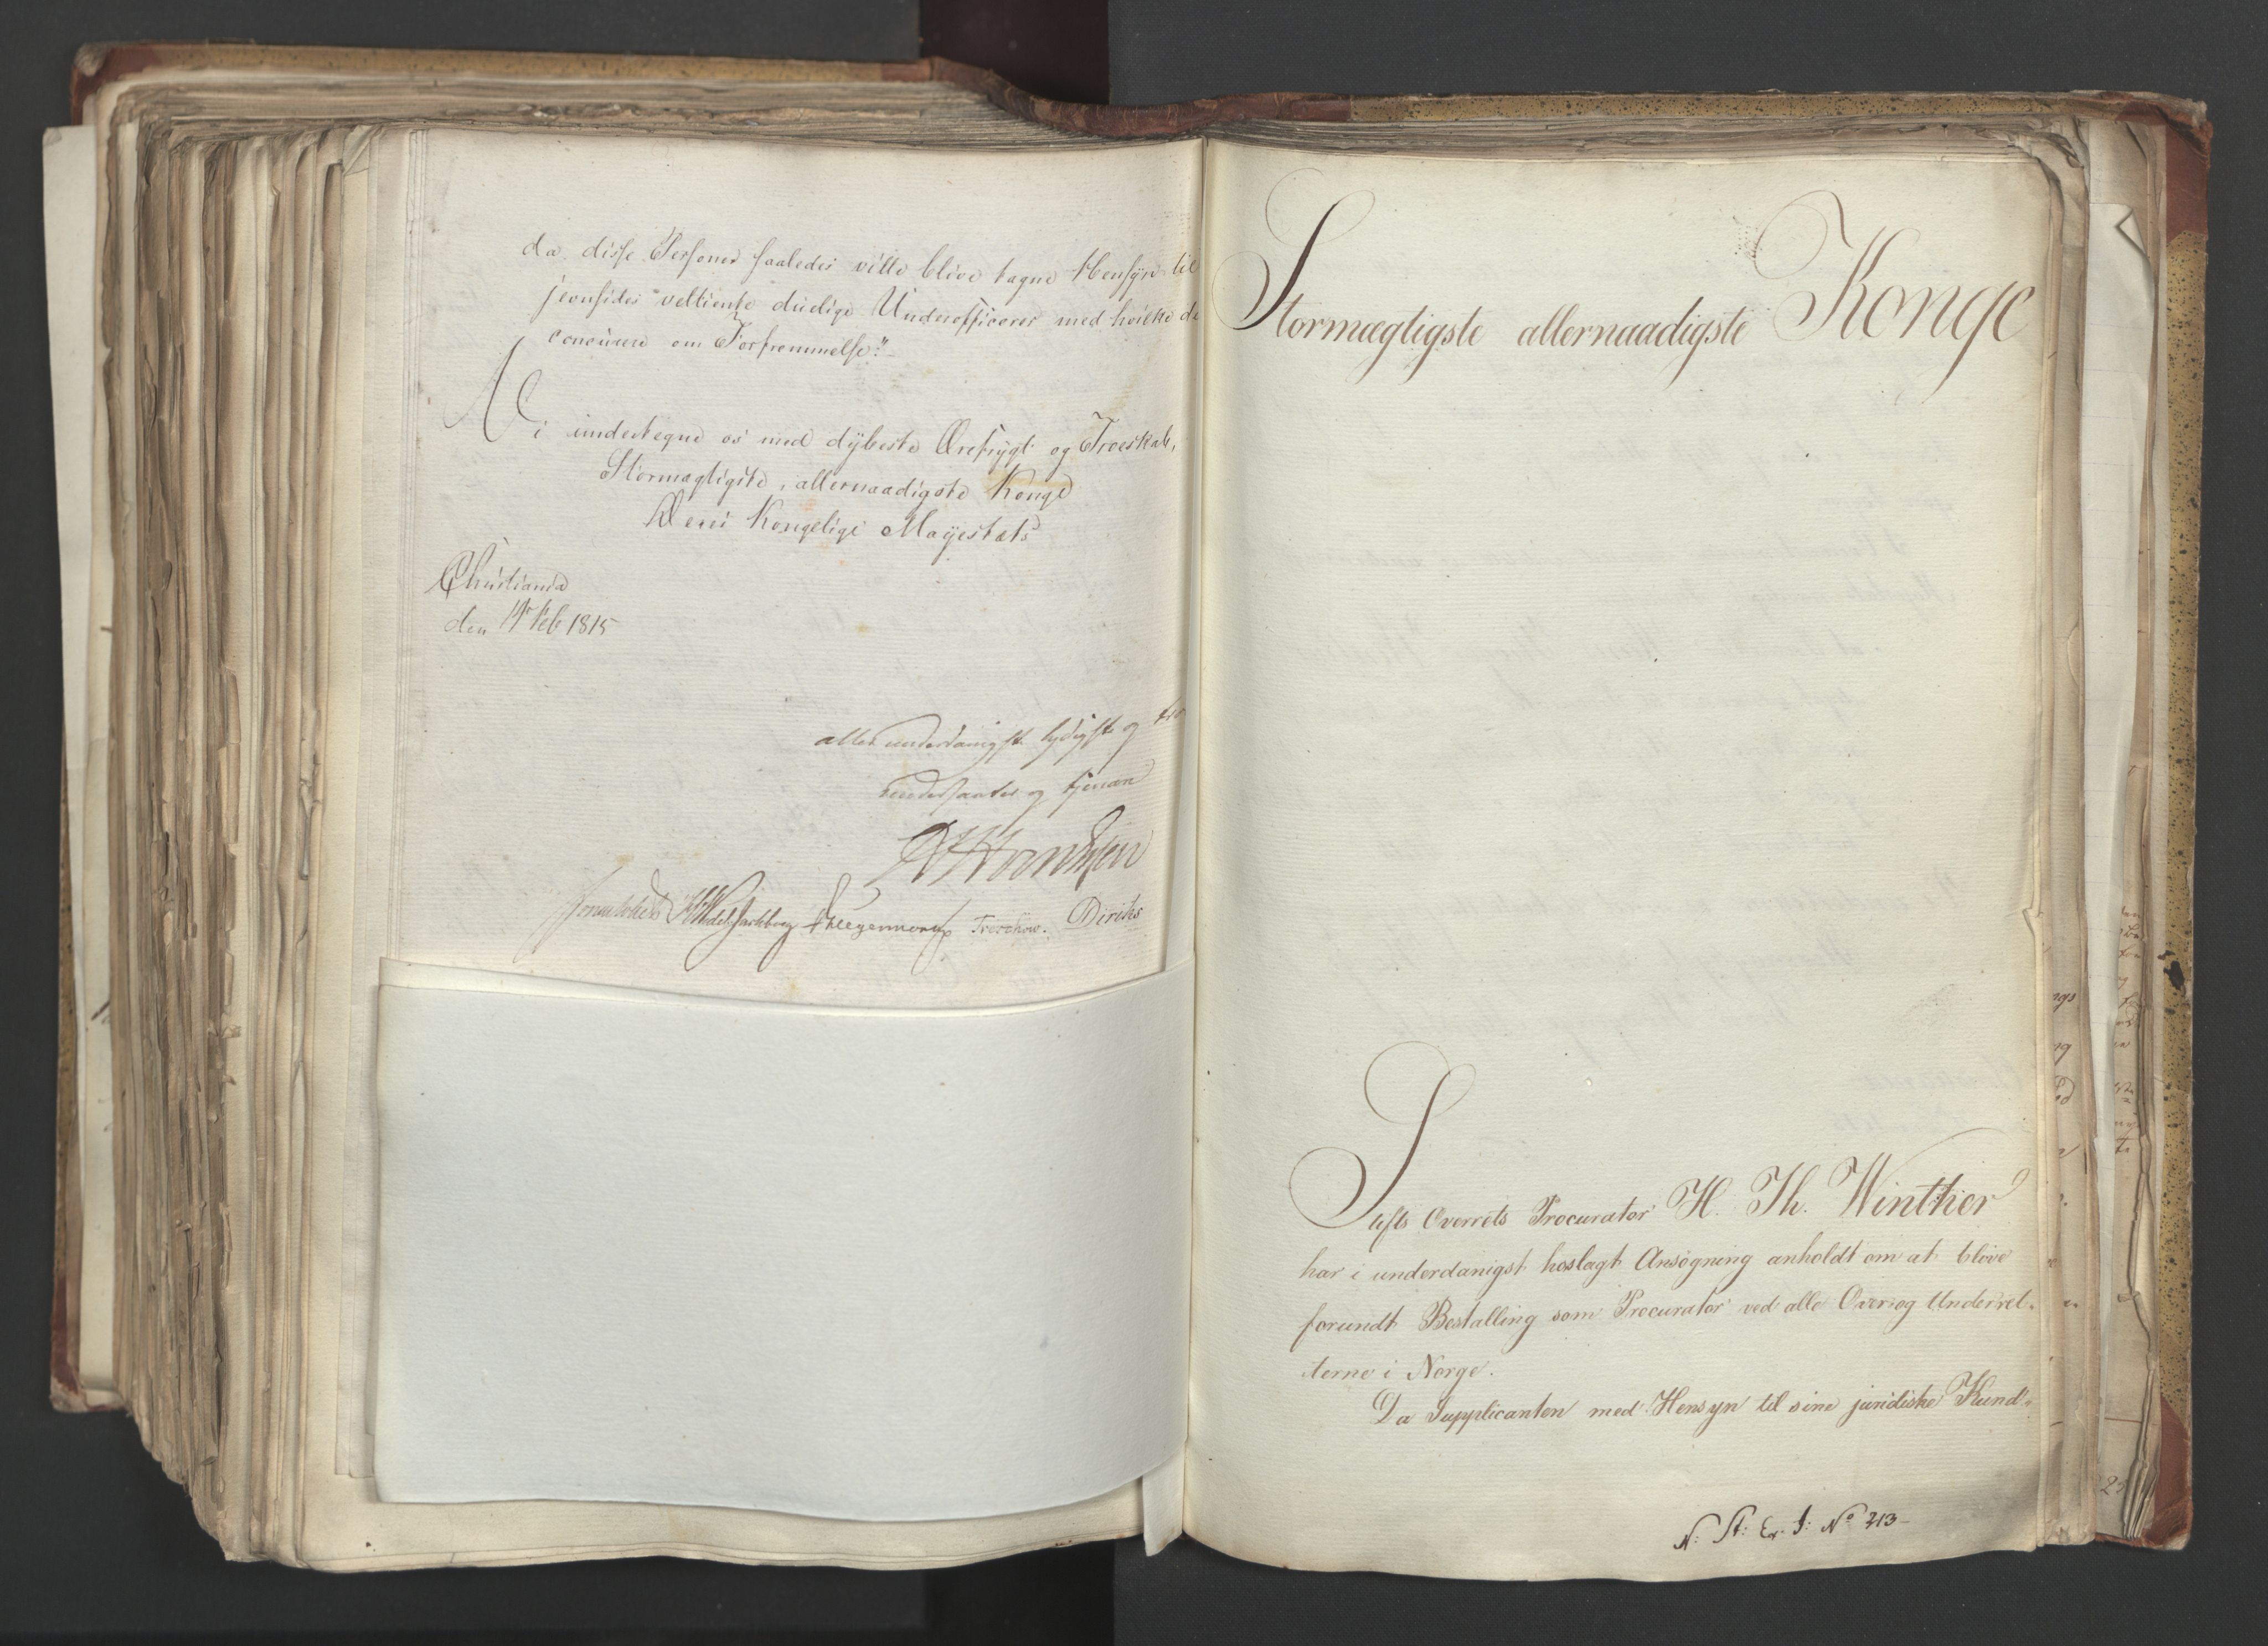 da disse Personer saaledes ville blive tagne Hensyn til
jevnsides veltiente duelige Underofficerer med hvilke de
concurere om Forfremmelse."
Vi undertegne os med dybeste Ærefrygt og Troeskab,
Stormægtigste, allernaadigste Konge
Deres Kongelige Mayestæts
Christiania
den 14 Feb 1815
allerunderdanigste lydigste og tro
undersaatter og tjenere
Sommerhielm Wedel Jarlsberg Hegermann Treschow. Diriks
Stormægtigste allernaadigste Konge
Stifts Overrets Procurator H. Th. Winther
har i underdanigst hoslagt Ansøgning anholdt om at blive
forundt Bestalling som Procurator ved alle Over og Underret-
terne i Norge.
Da Supplicanten med Hensyn til sine juridiske Kund-
N: St: Ex. I: No 213-